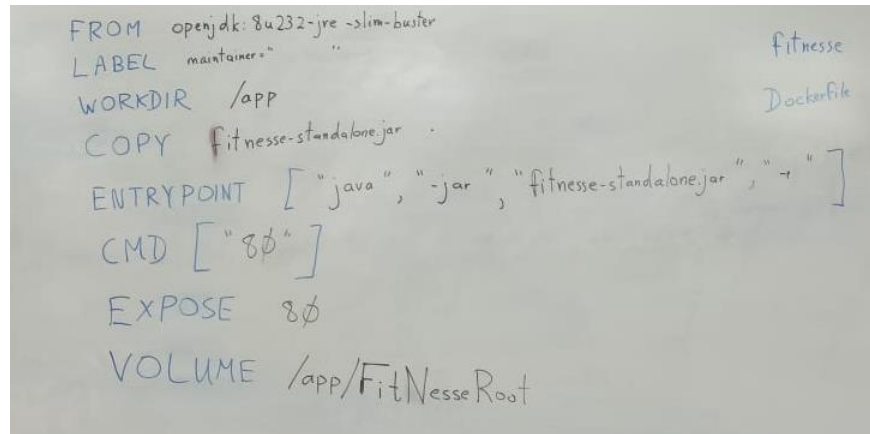 FROM openjdk:8u232-jre-slim-buster
LABEL maintainer="          "
WORKDIR /app
COPY fitnesse-standalone.jar .
ENTRYPOINT ["java", "-jar", "fitnesse-standalone.jar", "-"]
CMD ["80"]
EXPOSE 80
VOLUME /app/FitNesseRoot
fitnesse
Dockerfile